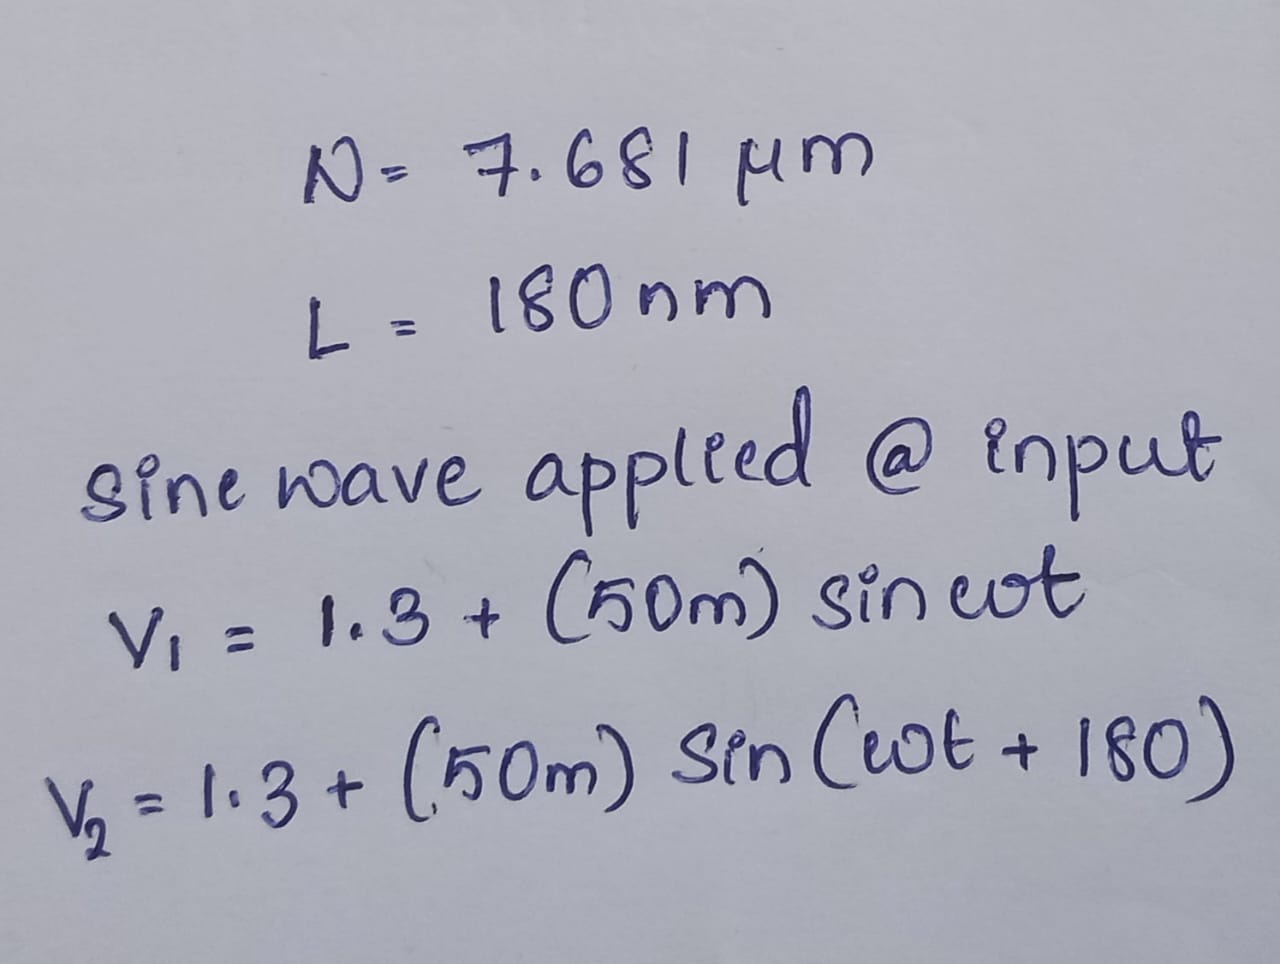 W= 7.681 μm
L = 180nm
sine wave applied @ input
V₁ = 1.3 + (50m) sin ωt
V₂ = 1.3 + (50m) Sin (ωt + 180)